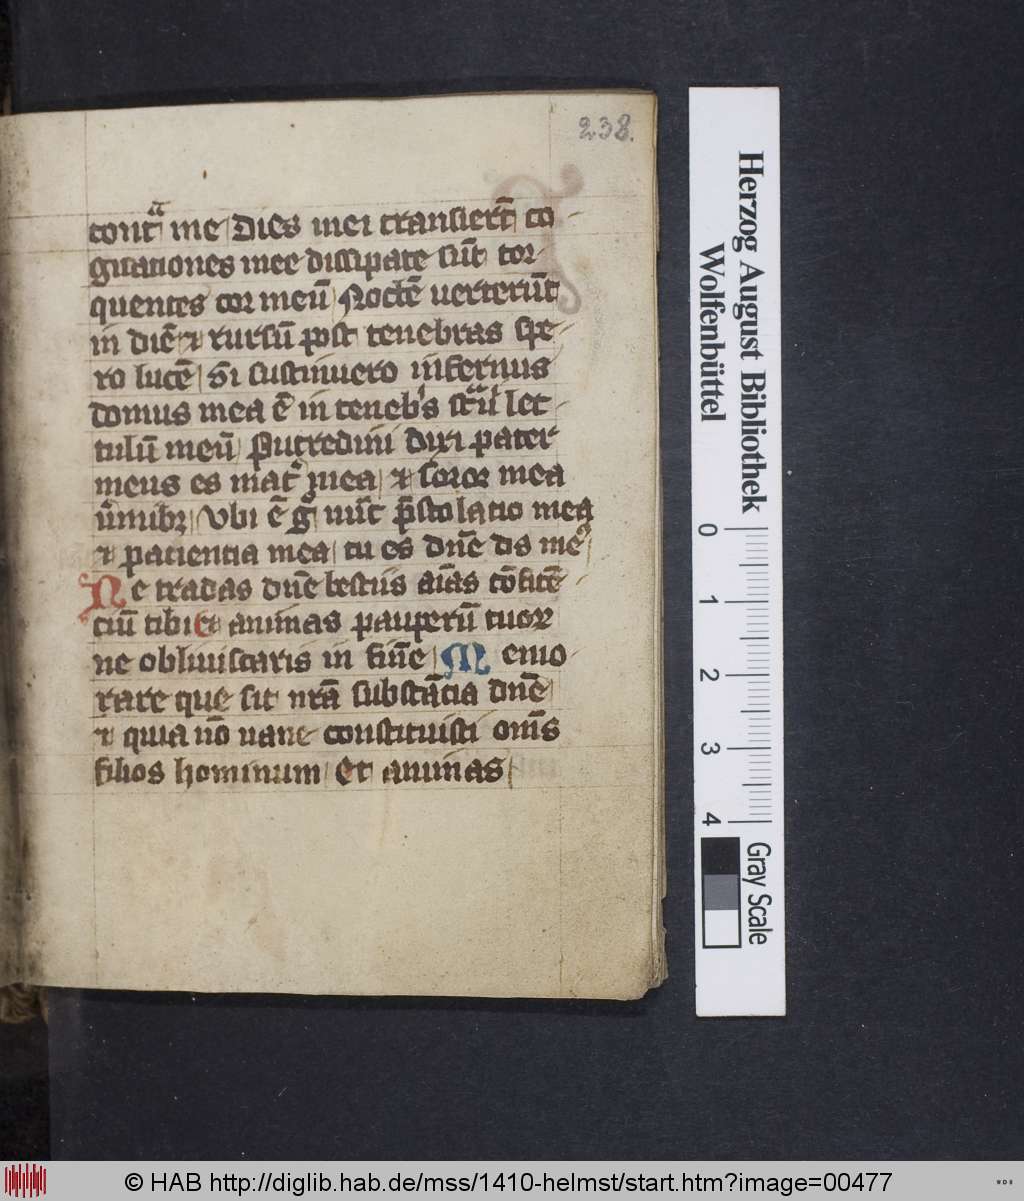 238.
contᵃ me dies mei transierūt co-
gitationes mee dissipate sūt tor-
quentes cor meū Noctē uerterūt
in diē ⁊ rursū post tenebras spe-
ro lucē Si sustinuero infernus
domus mea ē in tenebͥs stᵃuͥ lec-
tulū meū Putredini dixi pater
meus es mat͛ mea ⁊ soror mea
u͛mibꝫ Vbi ē gͦ nūc p̄stolatio mea
⁊ patientia mea tu es dn̄e ds meꝰ
Ne tradas dn̄e bestiis aīas cōfitē-
ciū tibi et animas pauperū tuoꝝ
ne obliuiscaris in finē Memo-
rare que sit nr̄a substācia dn̄e
⁊ quia nō uane constituisti om̄s
filios hominum Et animas
Herzog August Bibliothek
Wolfenbüttel
0 1 2 3 4
Gray Scale
© HAB http://diglib.hab.de/mss/1410-helmst/start.htm?image=00477